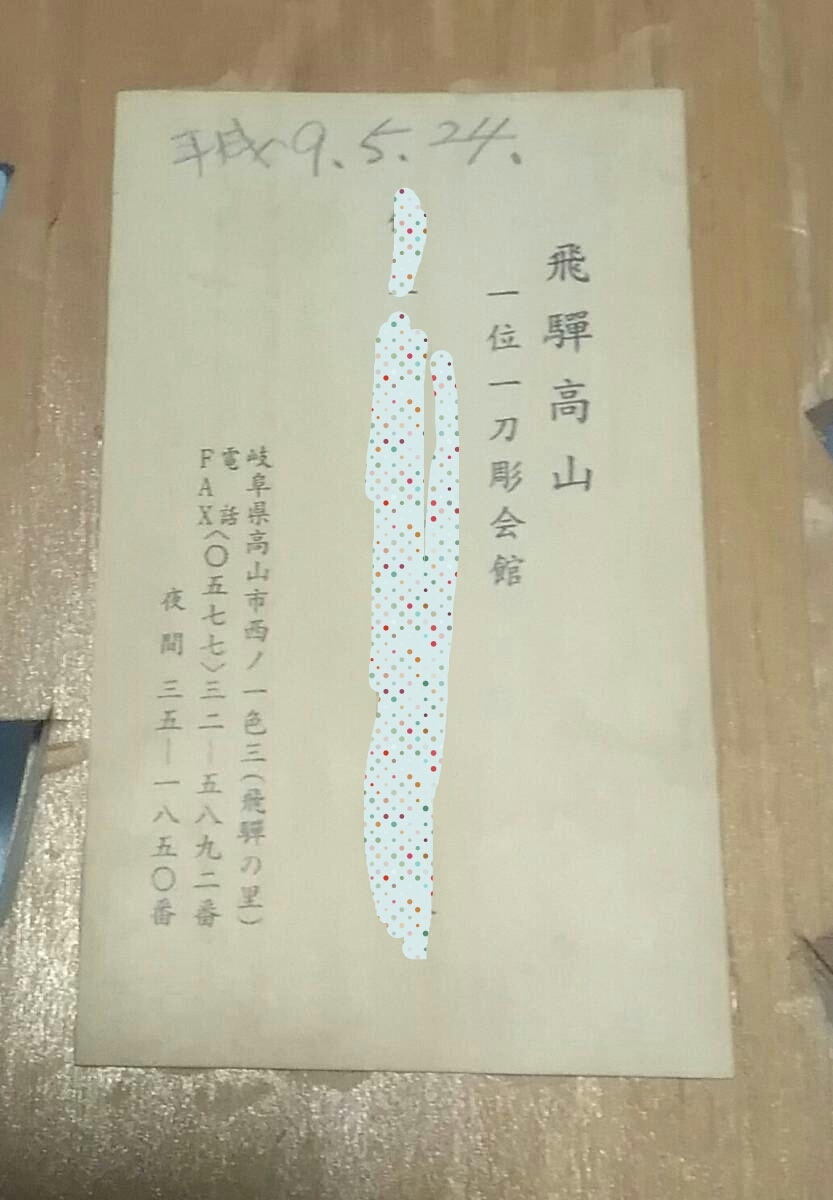 平成9.5.24.
飛驒高山
一位一刀彫会館
岐阜県高山市西ノ一色三(飛驒の里)
電話
FAX〈〇五七七〉三二―五八九二番
夜間 三五―一八五〇番